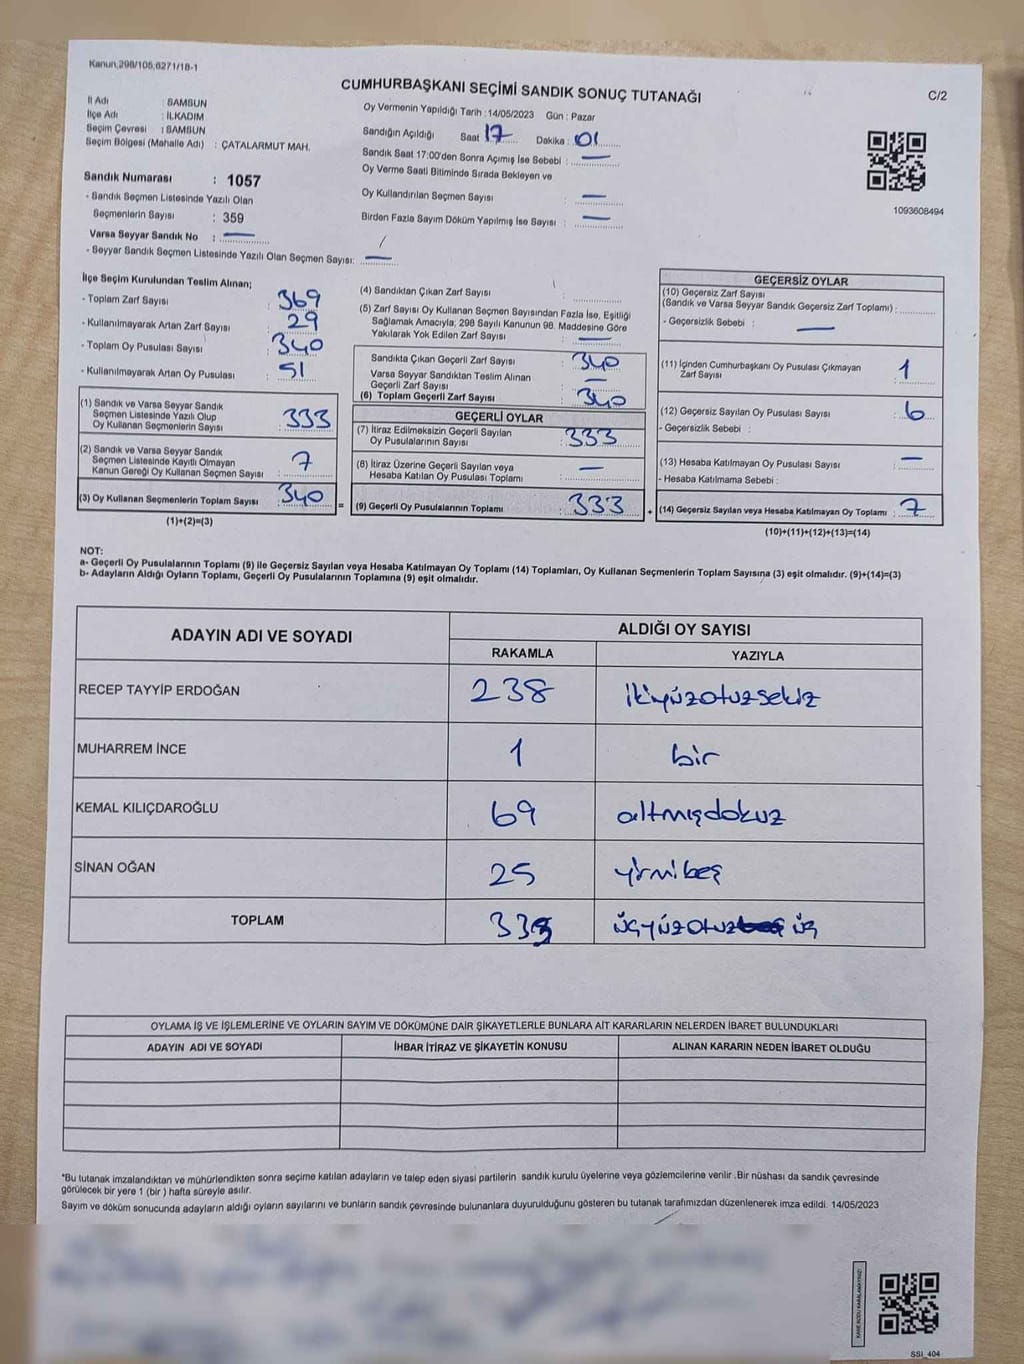 Kanun,298/105,6271/18-1
CUMHURBAŞKANI SEÇİMİ SANDIK SONUÇ TUTANAĞI
C/2
İl Adı : SAMSUN
İlçe Adı : İLKADIM
Seçim Çevresi : SAMSUN
Seçim Bölgesi (Mahalle Adı) : ÇATALARMUT MAH.
Sandık Numarası : 1057
- Sandık Seçmen Listesinde Yazılı Olan
Seçmenlerin Sayısı : 359
Varsa Seyyar Sandık No : —
- Seyyar Sandık Seçmen Listesinde Yazılı Olan Seçmen Sayısı: —
Oy Vermenin Yapıldığı Tarih : 14/05/2023 Gün : Pazar
Sandığın Açıldığı Saat 17 Dakika : 01
Sandık Saat 17:00'den Sonra Açımış İse Sebebi : —
Oy Verme Saati Bitiminde Sırada Bekleyen ve
Oy Kullandırılan Seçmen Sayısı : —
Birden Fazla Sayım Döküm Yapılmış İse Sayısı : —
1093608494
İlçe Seçim Kurulundan Teslim Alınan;
- Toplam Zarf Sayısı : 369
- Kullanılmayarak Artan Zarf Sayısı : 29
- Toplam Oy Pusulası Sayısı : 340
- Kullanılmayarak Artan Oy Pusulası : 51
(1) Sandık ve Varsa Seyyar Sandık
Seçmen Listesinde Yazılı Olup
Oy Kullanan Seçmenlerin Sayısı : 333
(2) Sandık ve Varsa Seyyar Sandık
Seçmen Listesinde Kayıtlı Olmayan
Kanun Gereği Oy Kullanan Seçmen Sayısı : 7
(3) Oy Kullanan Seçmenlerin Toplam Sayısı : 340
(1)+(2)=(3)
=
(4) Sandıktan Çıkan Zarf Sayısı :
(5) Zarf Sayısı Oy Kullanan Seçmen Sayısından Fazla İse, Eşitliği
Sağlamak Amacıyla; 298 Sayılı Kanunun 98. Maddesine Göre
Yakılarak Yok Edilen Zarf Sayısı : —
Sandıkta Çıkan Geçerli Zarf Sayısı : 340
Varsa Seyyar Sandıktan Teslim Alınan
Geçerli Zarf Sayısı : —
(6) Toplam Geçerli Zarf Sayısı : 340
GEÇERLİ OYLAR
(7) İtiraz Edilmeksizin Geçerli Sayılan
Oy Pusulalarının Sayısı : 333
(8) İtiraz Üzerine Geçerli Sayılan veya
Hesaba Katılan Oy Pusulası Toplamı : —
(9) Geçerli Oy Pusulalarının Toplamı : 333
+
GEÇERSİZ OYLAR
(10) Geçersiz Zarf Sayısı
(Sandık ve Varsa Seyyar Sandık Geçersiz Zarf Toplamı) :
- Geçersizlik Sebebi : —
(11) İçinden Cumhurbaşkanı Oy Pusulası Çıkmayan
Zarf Sayısı : 1
(12) Geçersiz Sayılan Oy Pusulası Sayısı : 6
- Geçersizlik Sebebi :
(13) Hesaba Katılmayan Oy Pusulası Sayısı : —
- Hesaba Katılmama Sebebi :
(14) Geçersiz Sayılan veya Hesaba Katılmayan Oy Toplamı : 7
(10)+(11)+(12)+(13)=(14)
NOT:
a- Geçerli Oy Pusulalarının Toplamı (9) ile Geçersiz Sayılan veya Hesaba Katılmayan Oy Toplamı (14) Toplamları, Oy Kullanan Seçmenlerin Toplam Sayısına (3) eşit olmalıdır. (9)+(14)=(3)
b- Adayların Aldığı Oyların Toplamı, Geçerli Oy Pusulalarının Toplamına (9) eşit olmalıdır.
ADAYIN ADI VE SOYADI
ALDIĞI OY SAYISI
RAKAMLA YAZIYLA
RECEP TAYYİP ERDOĞAN 238 ikiyüzotuzsekiz
MUHARREM İNCE 1 bir
KEMAL KILIÇDAROĞLU 69 altmışdokuz
SİNAN OĞAN 25 yirmibeş
TOPLAM 333 üçyüzotuz üç
OYLAMA İŞ VE İŞLEMLERİNE VE OYLARIN SAYIM VE DÖKÜMÜNE DAİR ŞİKAYETLERLE BUNLARA AİT KARARLARIN NELERDEN İBARET BULUNDUKLARI
ADAYIN ADI VE SOYADI İHBAR İTİRAZ VE ŞİKAYETİN KONUSU ALINAN KARARIN NEDEN İBARET OLDUĞU
*Bu tutanak imzalandıktan ve mühürlendikten sonra seçime katılan adayların ve talep eden siyasi partilerin sandık kurulu üyelerine veya gözlemcilerine verilir .Bir nüshası da sandık çevresinde
görülecek bir yere 1 (bir ) hafta süreyle asılır.
Sayım ve döküm sonucunda adayların aldığı oyların sayılarını ve bunların sandık çevresinde bulunanlara duyurulduğunu gösteren bu tutanak tarafımızdan düzenlenerek imza edildi. 14/05/2023
KARE KODU KARALAMAYINIZ!
SSI_404